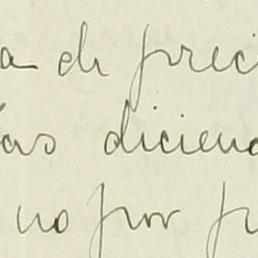 a de preci
as diciend
no por p